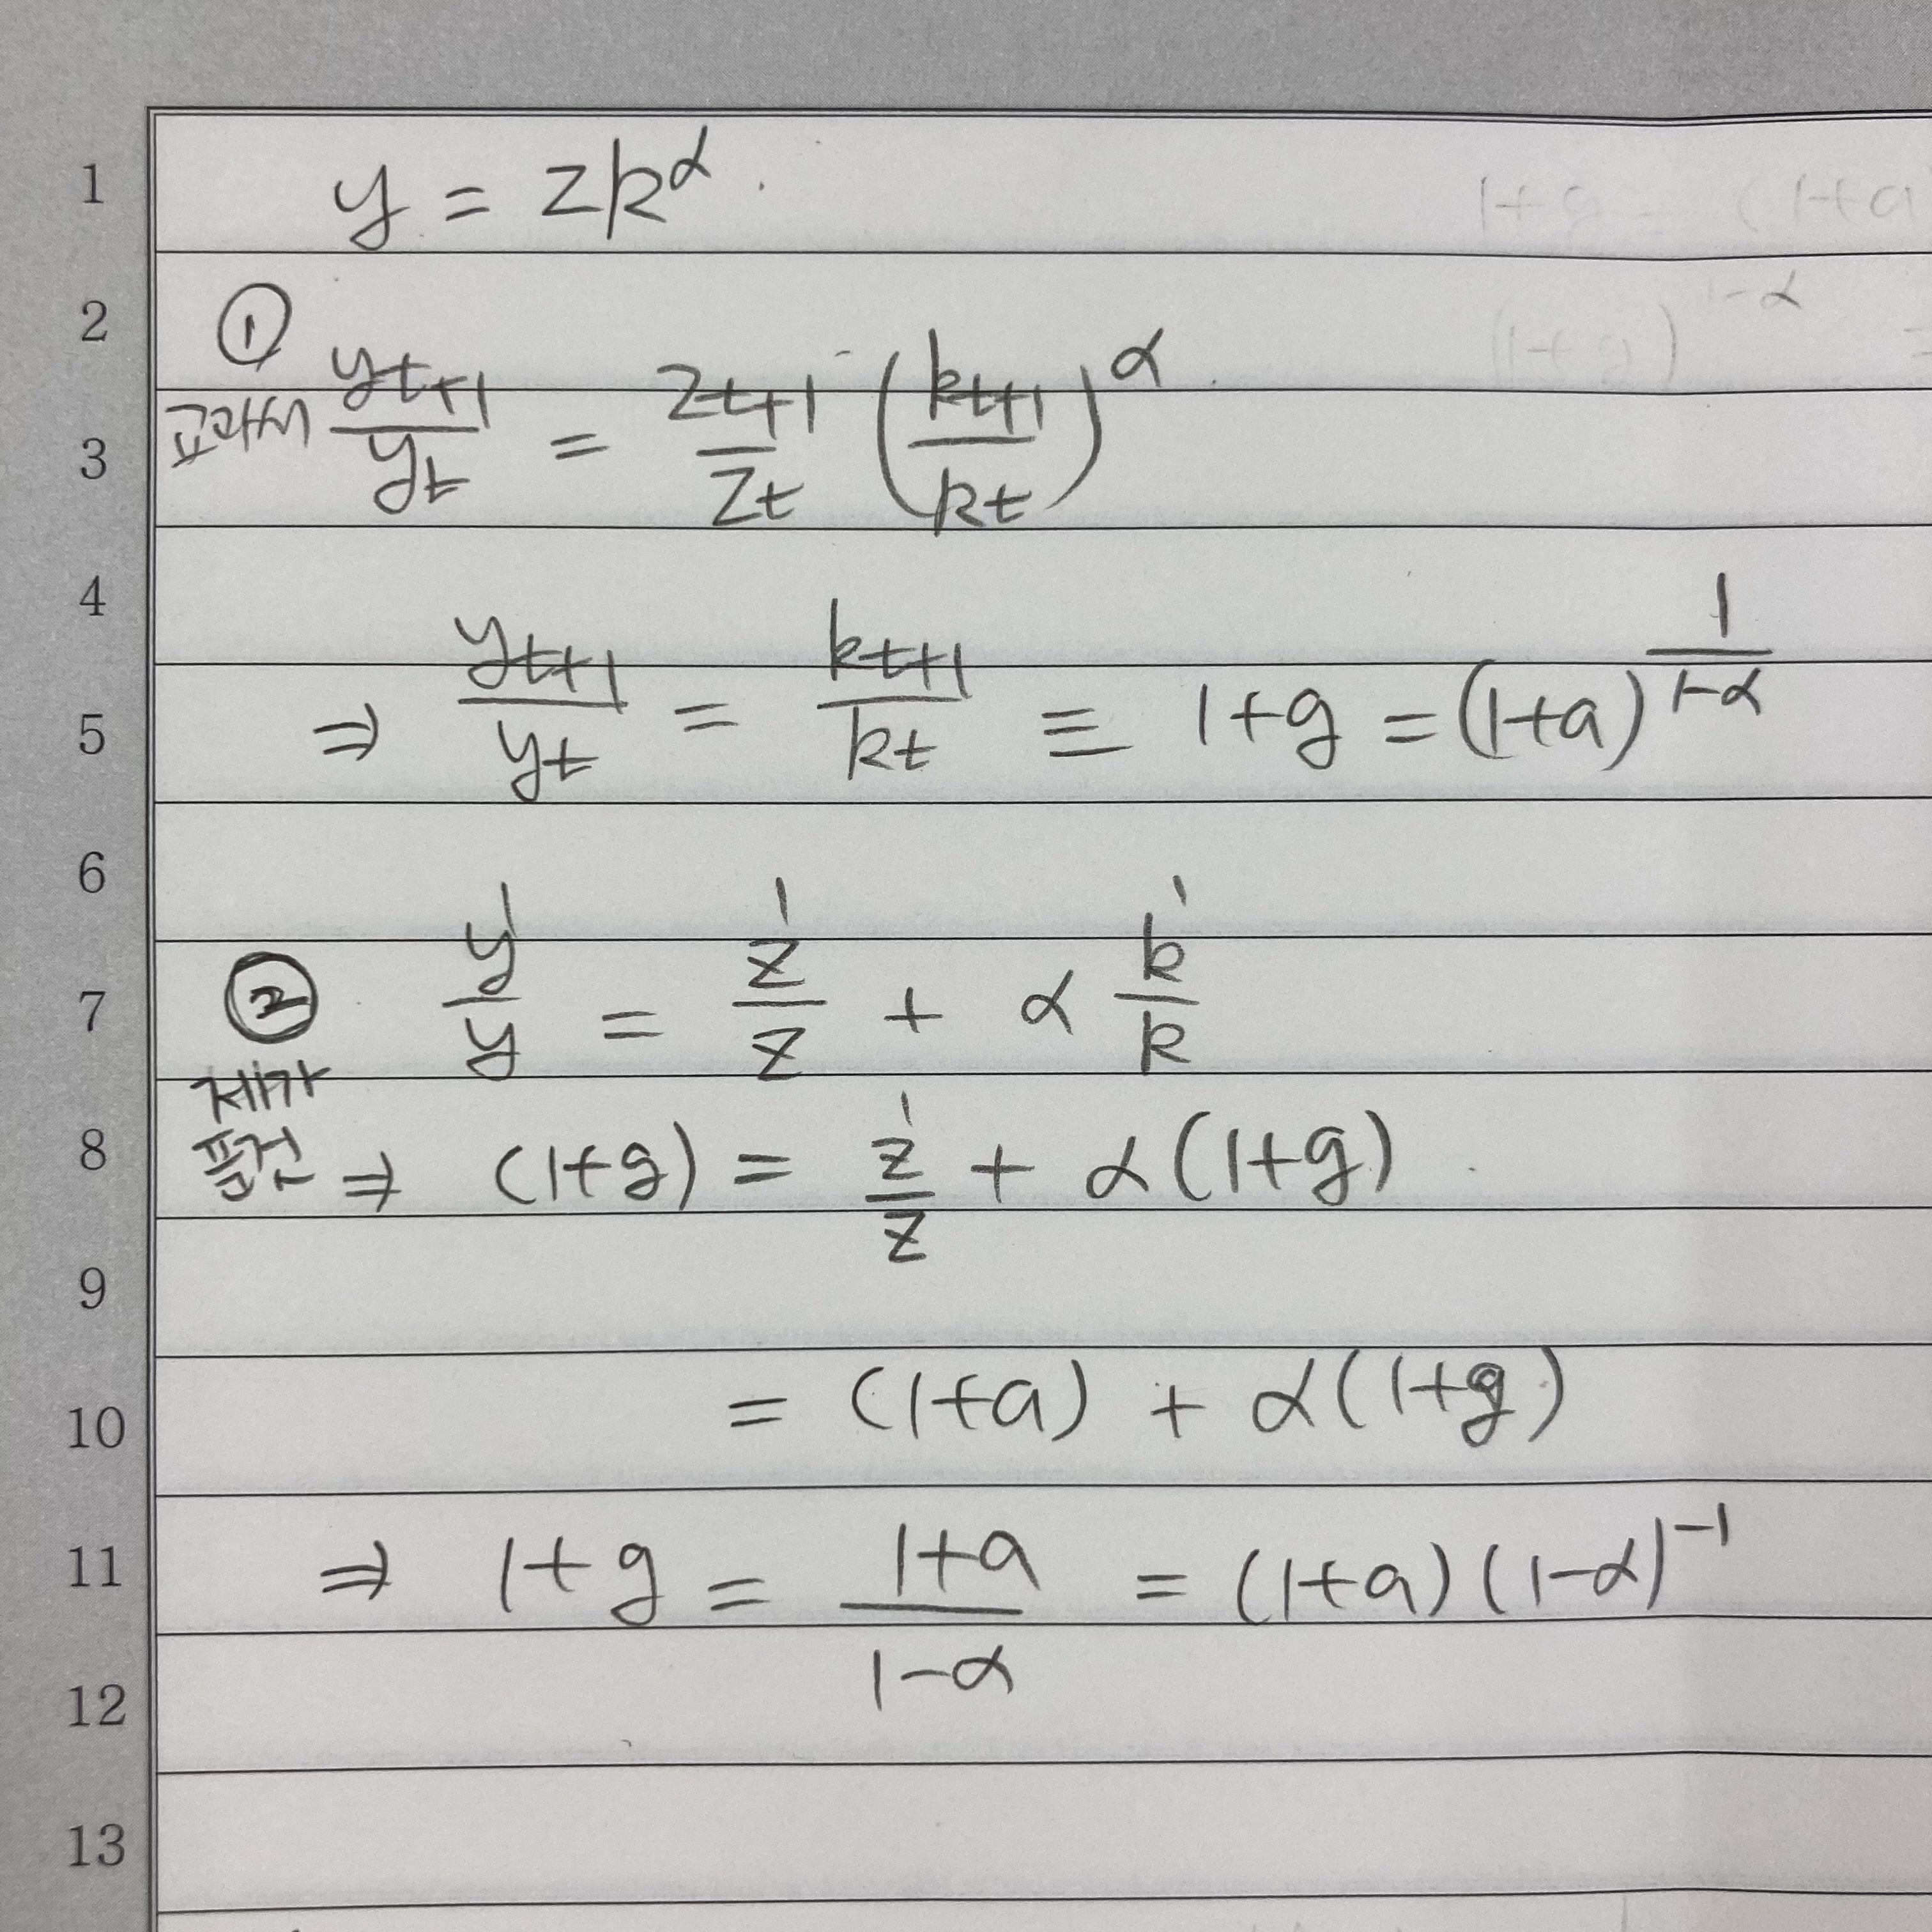 1 y = zk^α
2 ①
3 교과서 y_{t+1}/y_t = z_{t+1}/z_t (k_{t+1}/k_t)^α
4
5 ⇒ y_{t+1}/y_t = k_{t+1}/k_t ≡ 1+g = (1+a)^{1/(1-α)}
6
7 ② y'/y = z'/z + α k'/k
제가
8 푼건 ⇒ (1+g) = z'/z + α(1+g)
9
10 = (1+a) + α(1+g)
11 ⇒ 1+g = (1+a)/(1-α) = (1+a)(1-α)^{-1}
12
13